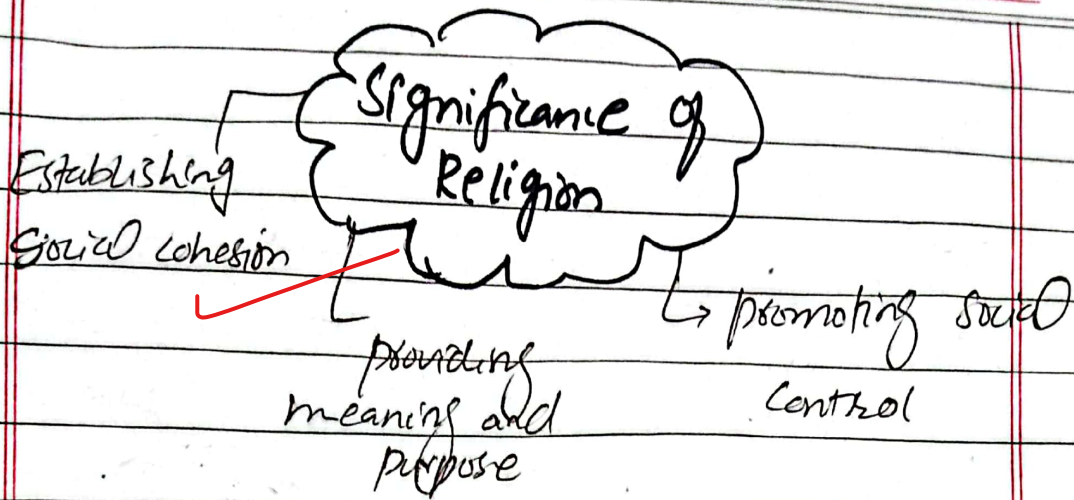 Significance of
Religion
Establishing
Social cohesion
providing
meaning and
purpose
promoting social
control